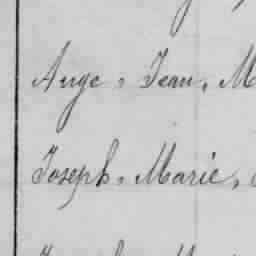 Ange, Jean, M
Joseph, Marie,